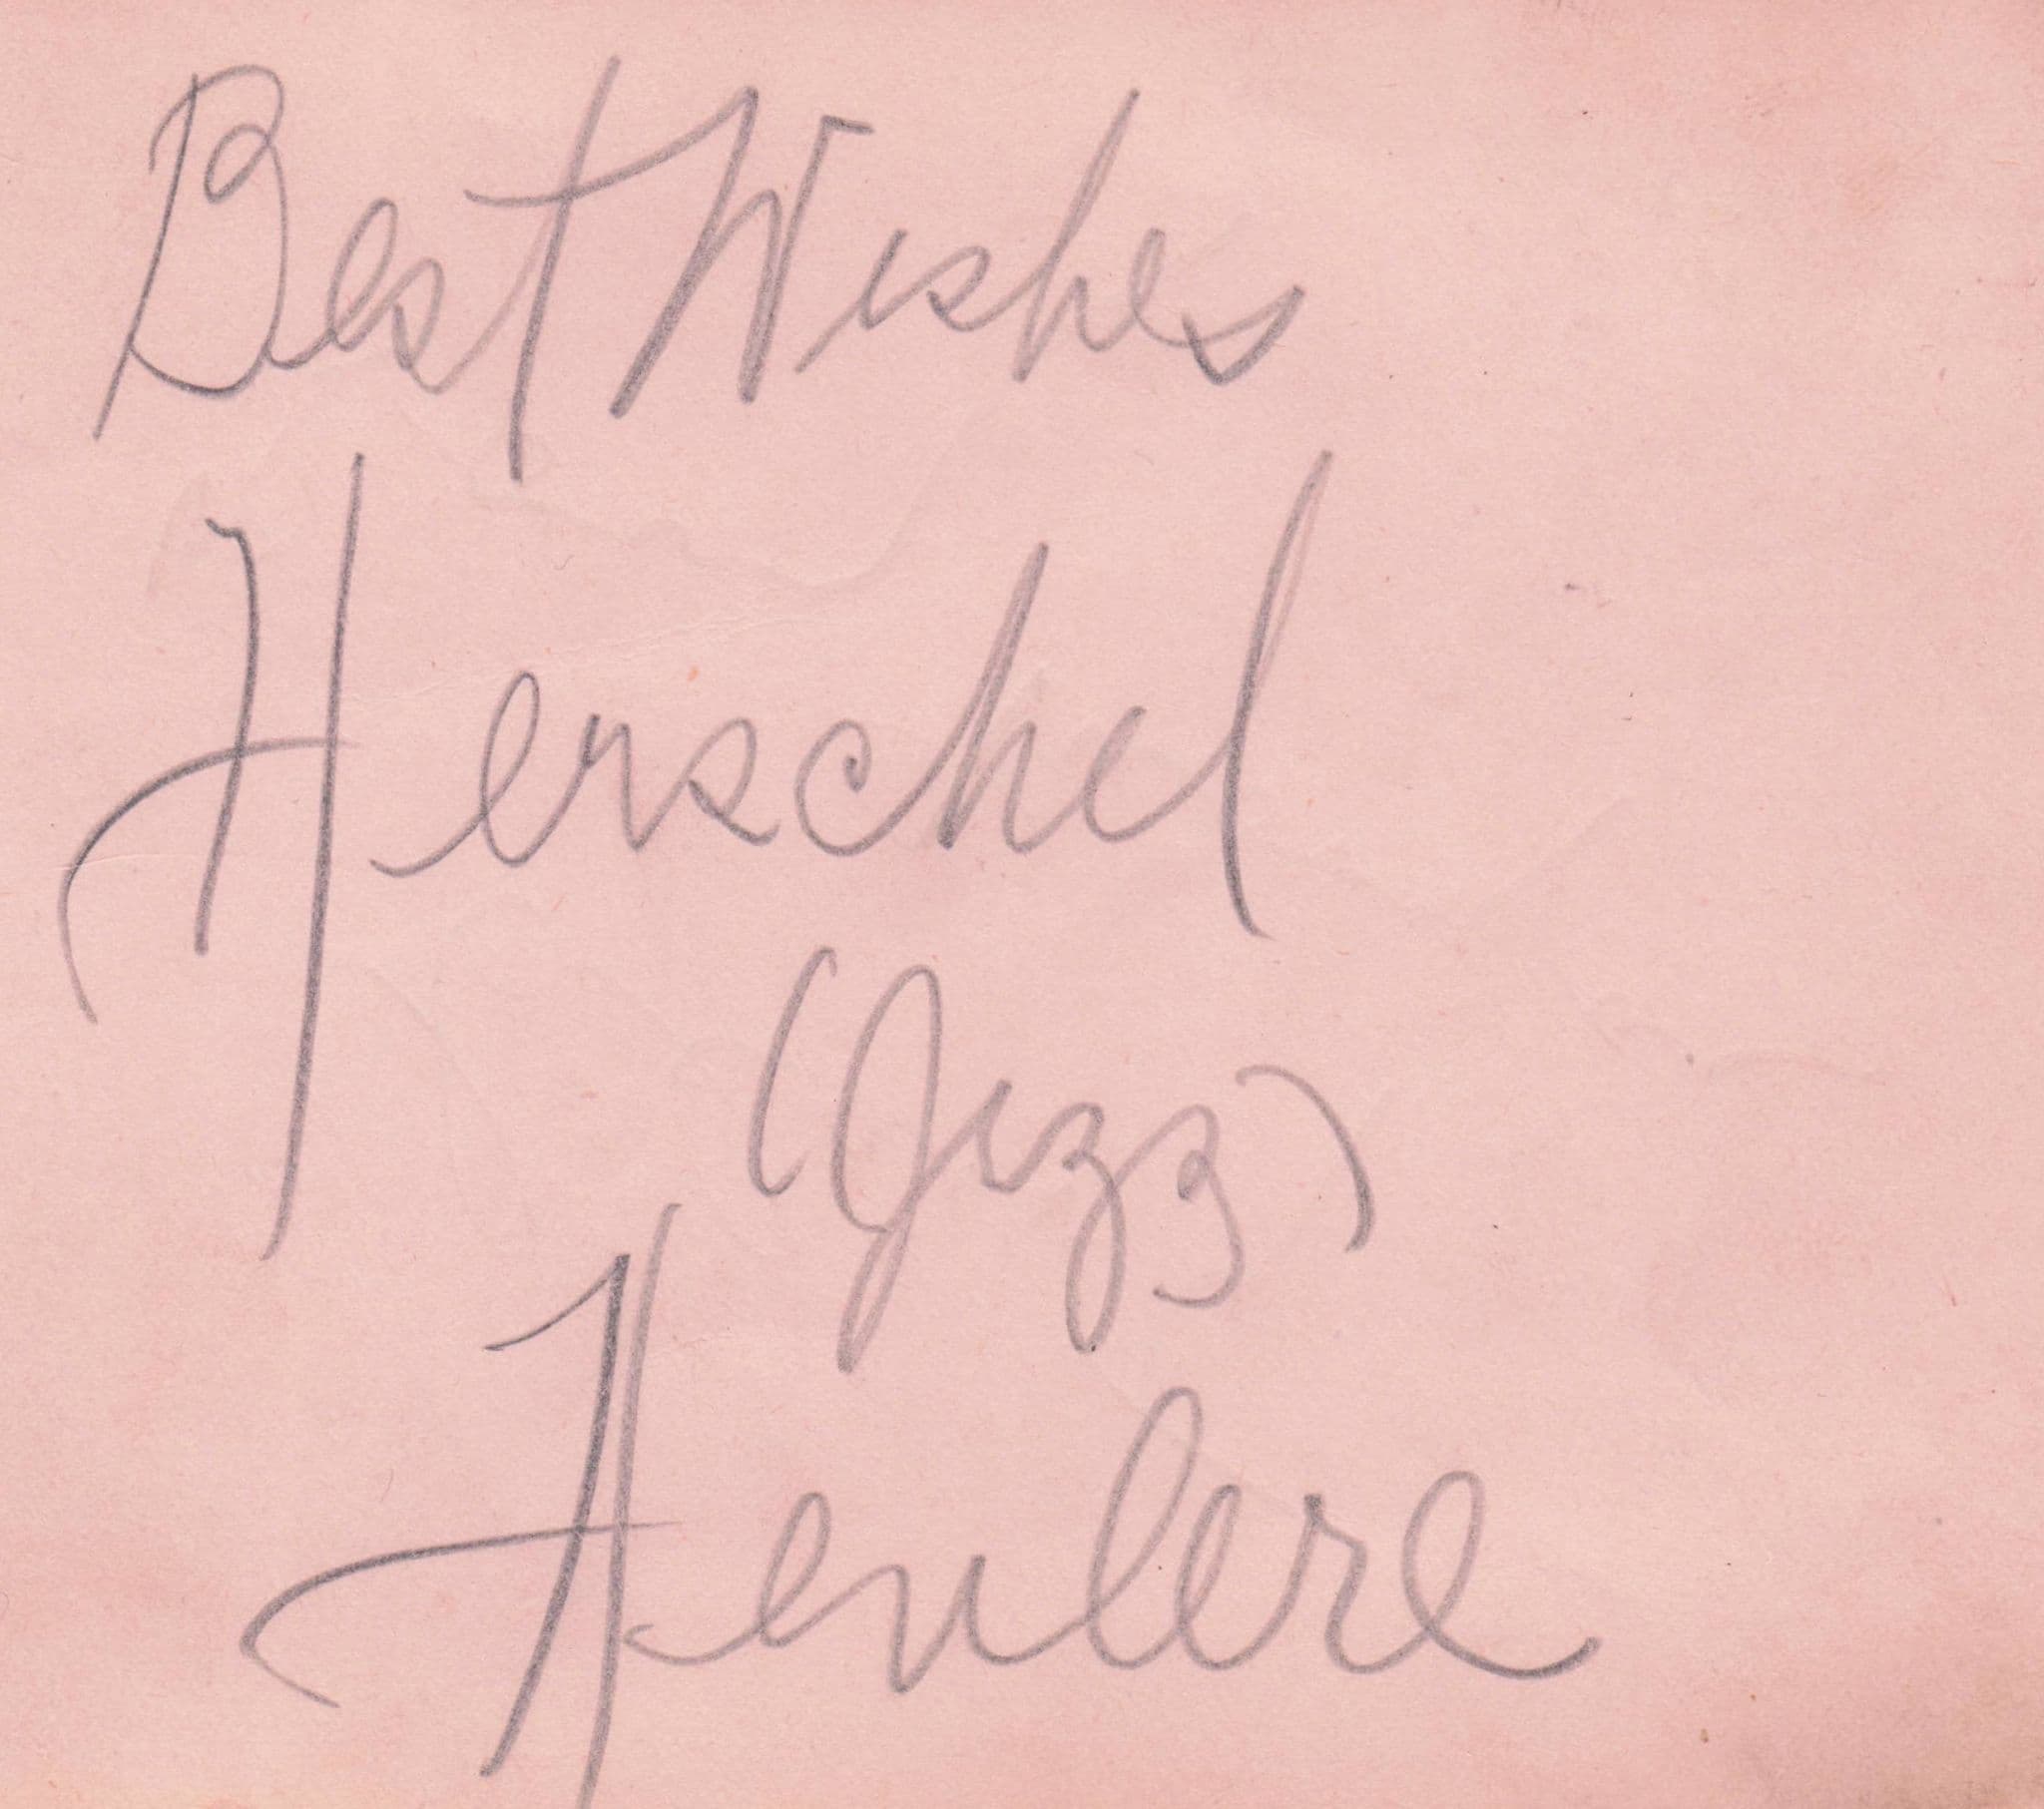 Best Wishes
Herschel
(Jizz)
Henlere